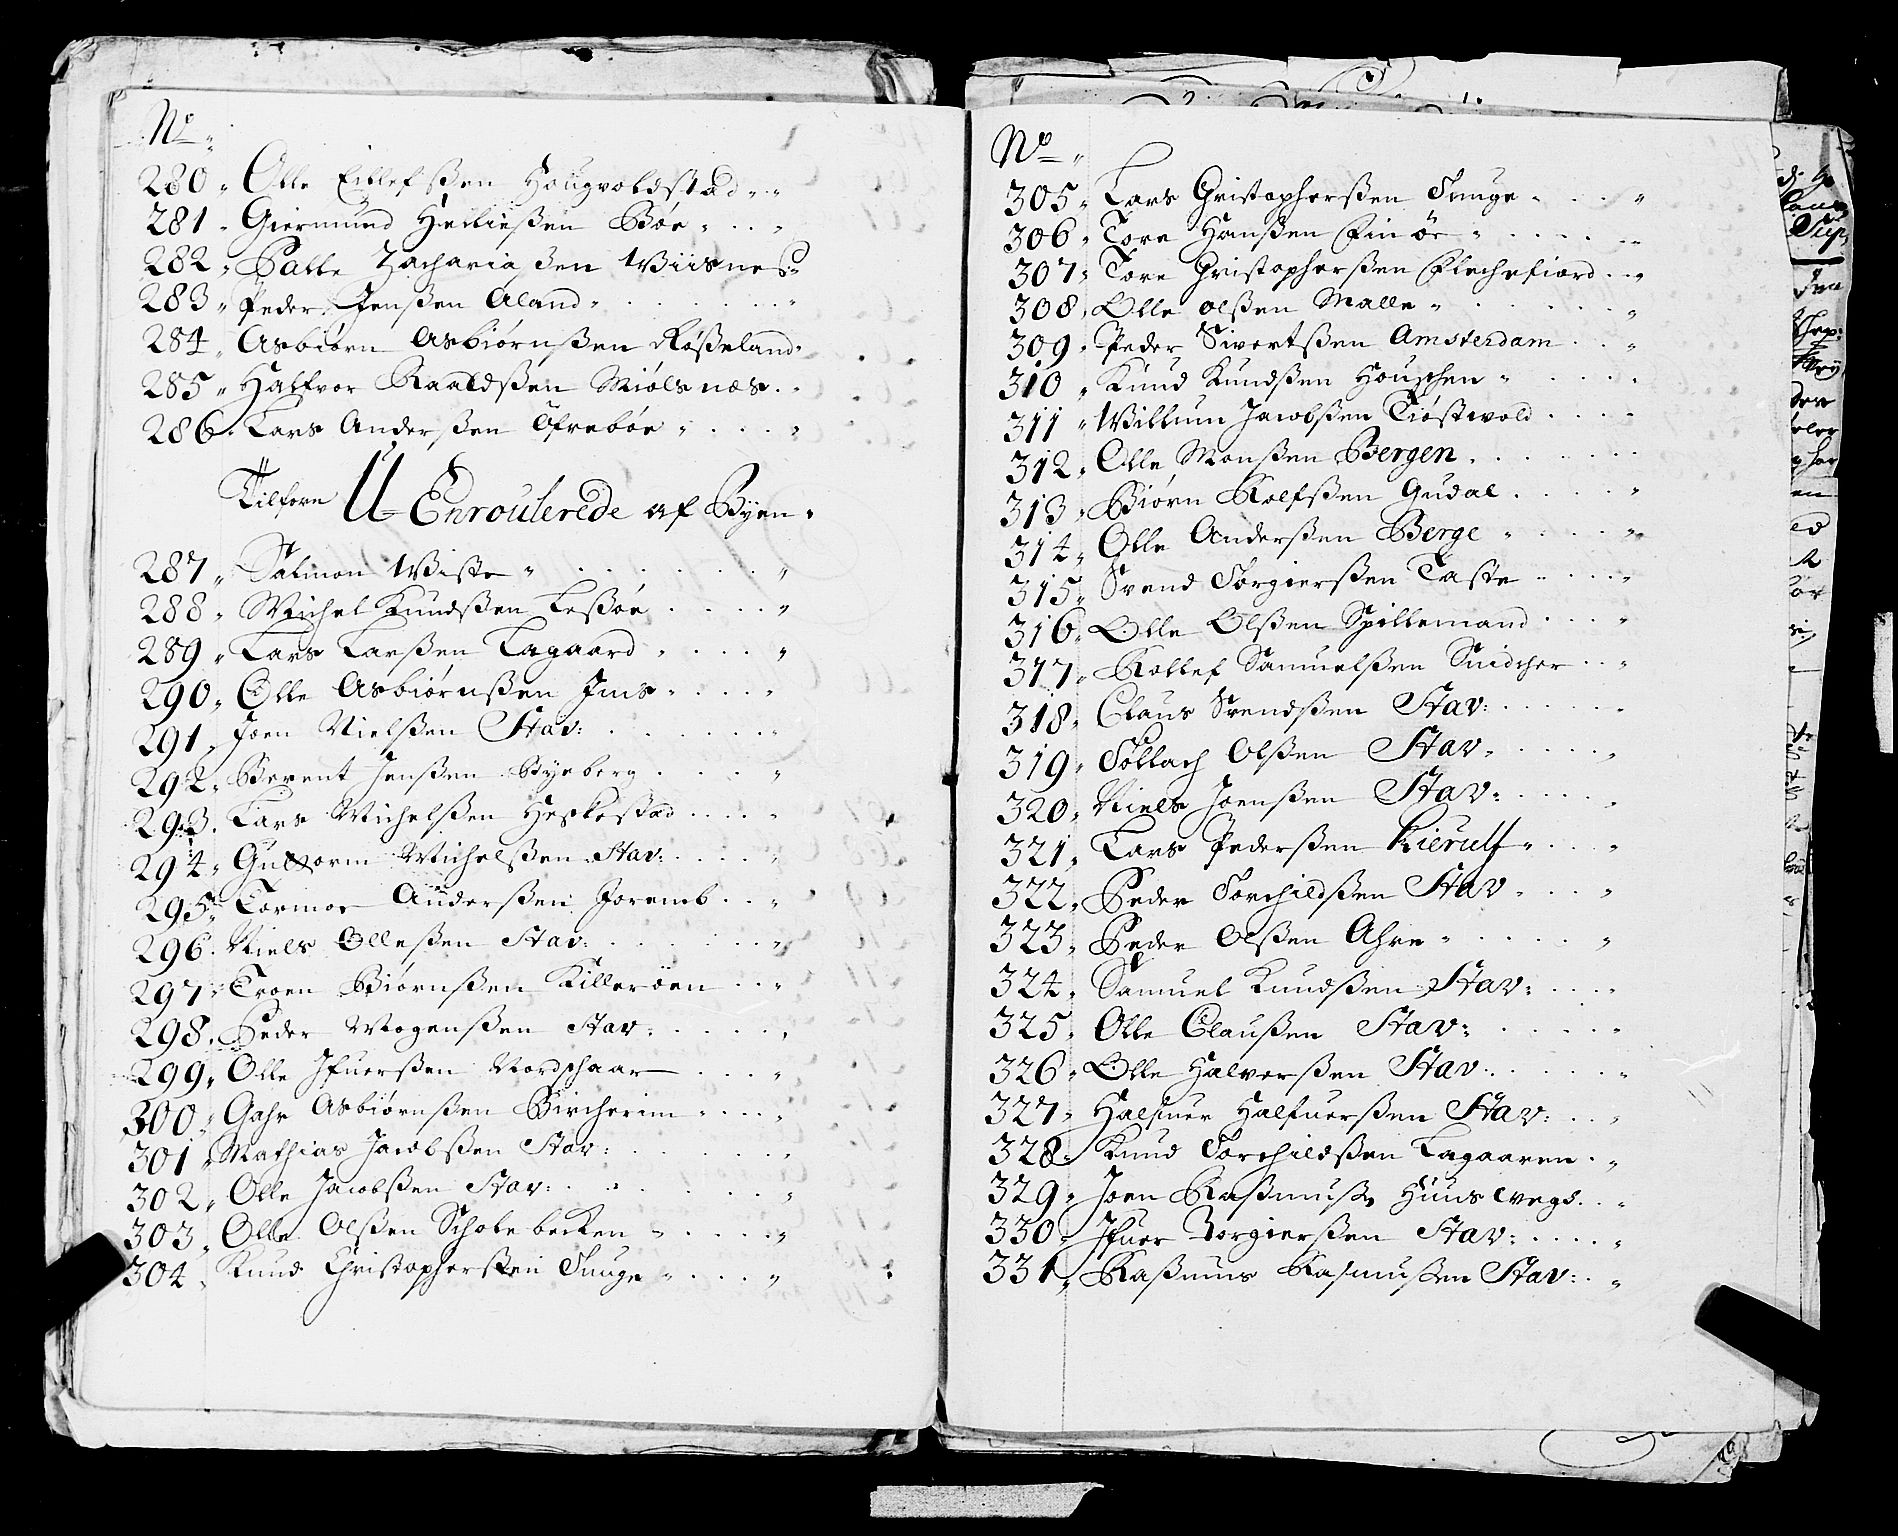 No
280. Olle Eillefßen Hougvoldstad
281. Giermund Helliesßen Bøe
282. Palle Zachariaßen Wiisnes
283. Peder Jenßen Aland
284. Asbiørn Asbiørnßen Røßeland
285. Halfvor Raaldßen Miølsnæs
286. Lars Anderßen Ofrebøe
Tilforn U-Enroulerede af Byen
287. Salmon Wiste
288. Michel Kundßen Leßøe
289. Lars Larßen Lagaard
290. Olle Asbiørnßen Jms
291. Joen Nielßen Stav:
292. Berent Jenßen Byeberg
293. Lars Michelßen Heskestad
294. Guttorm Michelßen Stav:
295. Tormoe Anderßen Joremb
296. Niels Olleßen Stav:
297. Troen Biørnßen Killerøen
298. Peder Mogenßen Stav:
299. Olle Jfuerßen Nordschaar
300. Gahr Asbiørnßen Bircherim
301. Mathias Jacobßen Stav:
302. Olle Jacobßen Stav:
303. Olle Olßen Scholebecken
304. Knud Christopherßen Tunge
No
305. Lars Gristopherßen Tunge
306. Tore Hanßen Finöe
307. Tore Gristopherßen Flechefiord
308. Olle olßen Malle
309. Peder Sivertßen Amsterdam
310. Knud Kundßen Houschen
311. Willum Jacobßen Tiøstwold
312. Olle Monßen Bergen
313. Biørn Rolfßen Gudal
314. Olle Anderßen Berge
315. Svend Torgierßen Taste
316. Olle Olßen Spillemand
317. Rollef Samuelßen Snidcher
318. Claus Svendßen Stav:
319. Tollach Olßen Stav
320. Niels Joenßen Stav:
321. Lars Pederßen Kierulf
322. Peder Torchildßen Stav
323. Peder Olßen Ahre
324. Samuel Kundßen Stav:
325. Olle Claußen Stav:
326. Olle Halverßen Stav:
327. Halfuer Halfuerßen Stav:
328. Knud Torchildßen Lagaaren
329. Joen Raßmuß Huuswegs
330. Jfuer Torgierßen Stav:
331. Raßmus Rasmußen Stav: